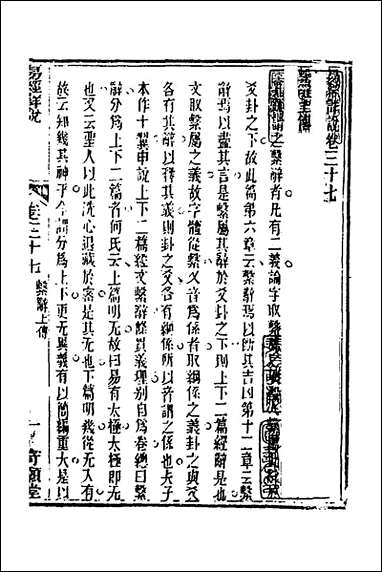 易經詳說卷三十七
繫辭上傳
謂之繫辭者凡有二義論字取繫屬
爻卦之下故此篇第六章云繫辭焉以斷其吉凶第十二章云繫
辭焉以盡其言是繫屬其辭於爻卦之下則上下二篇經辭是也
文取繫屬之義故字體從繫又音爲係者取綱係之義卦之與爻
各有其辭以釋其義則卦之與爻各有綱係所以音謂之係也夫子
本作十翼申說上下二篇經文繫辭條貫義理別自爲卷總曰繫
辭分爲上下二篇者何氏云上篇明无故曰易有太極太極即无
也又云聖人以此洗心退藏於密是其无也下篇明幾從无入有
故云知幾其神乎今謂分爲上下更无異義有以簡編重大是以
易經詳說
卷三十七 繫辭上傳
一
寄願堂